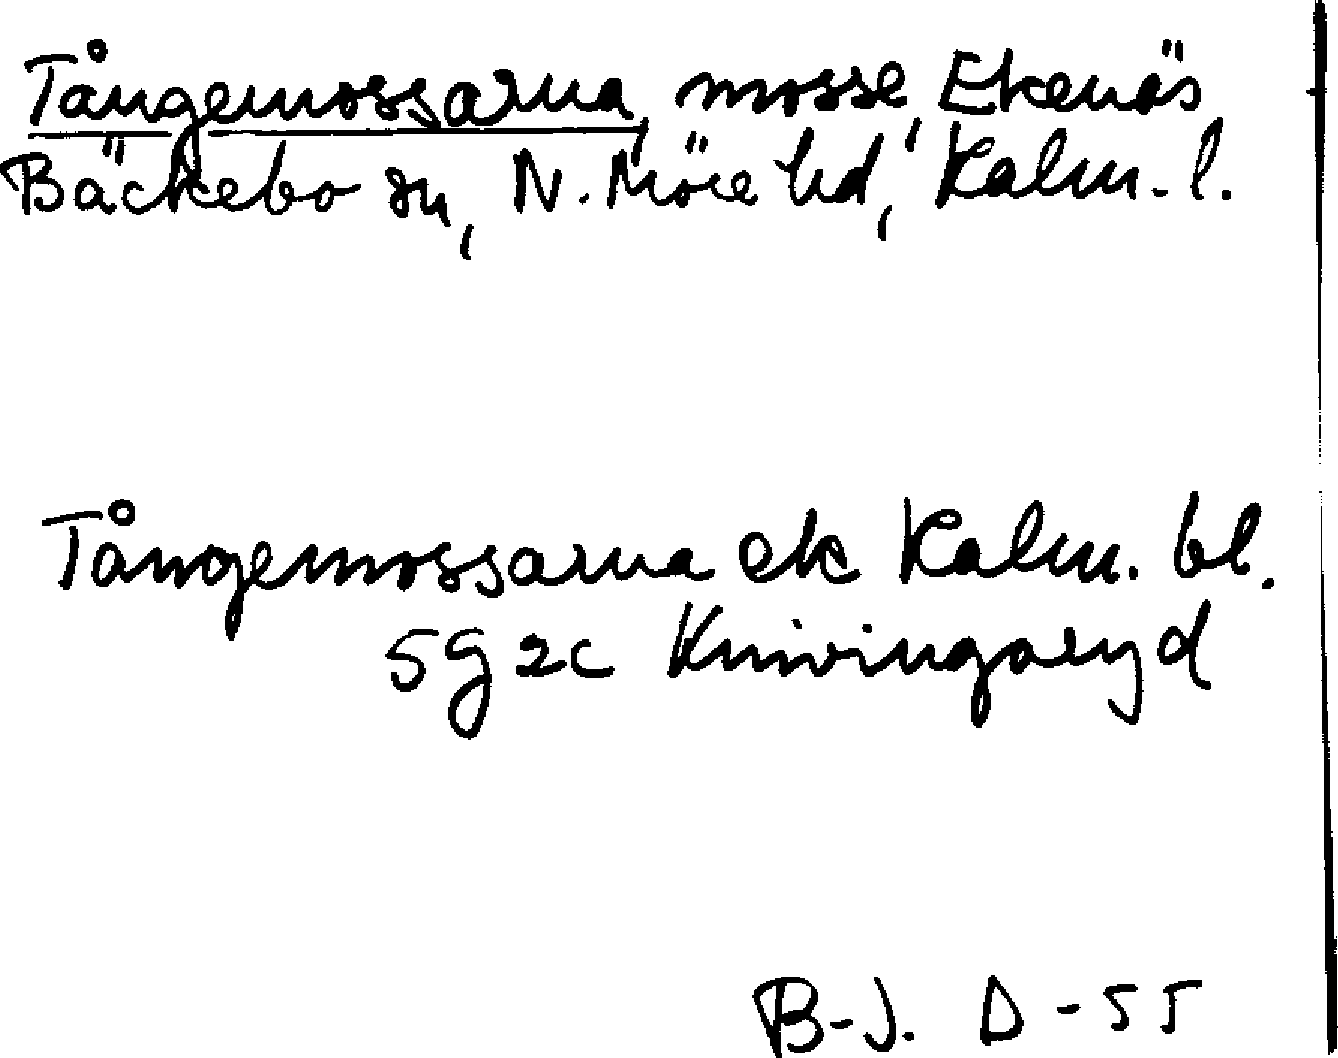 Tångemossarna, mosse, Ekenäs
Bäckebo sn, N. Möre hd, Kalm. l.
Tångemossarna ek Kalm. bl.
5g 2c Knivingaryd
B-J. D-55